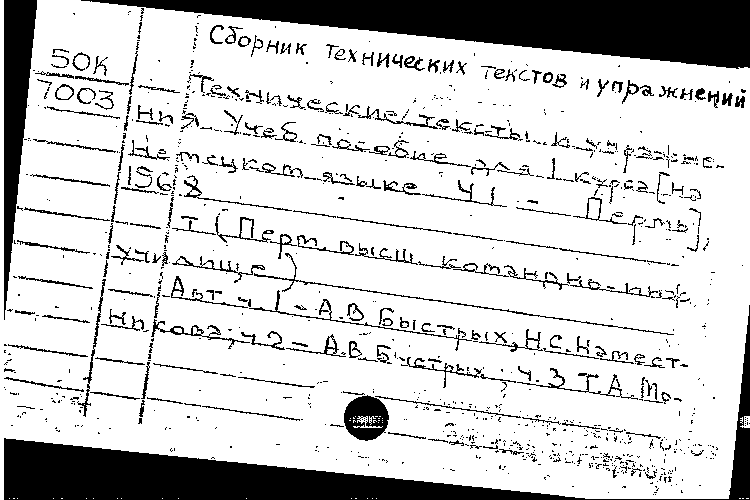 Сборник технических текстов и упражнений
50К
7003
Технические тексты и упражне-
ния. Учеб. пособие для 1 курса [на
Немецком языке Ч 1 - Пермь],
1968
т (Перм. высш. командно-инж
училище)
Авт. ч.1 - А.В. Быстрых, Н.С. Намест-
никова; ч.2 - А.В. Быстрых; ч.3 Т.А. Мо-